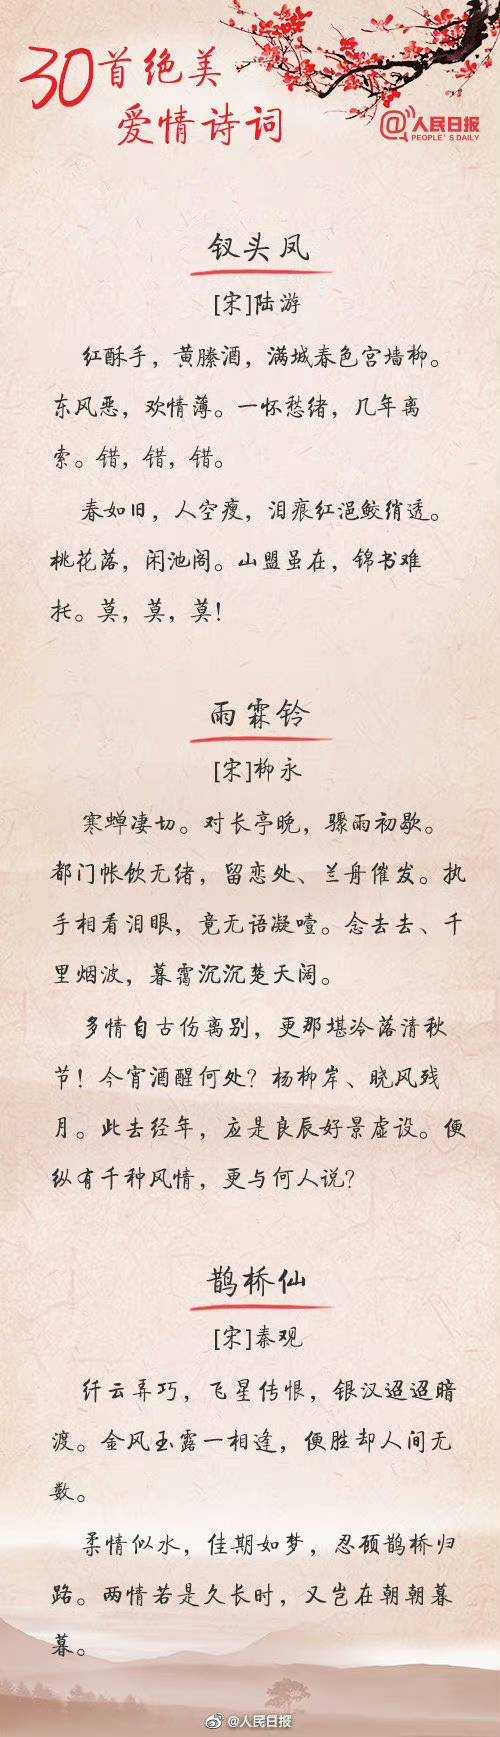 30首绝美
爱情诗词
@人民日报
PEOPLE'S DAILY
钗头凤
[宋]陆游
红酥手，黄縢酒，满城春色宫墙柳。
东风恶，欢情薄。一怀愁绪，几年离
索。错，错，错。
春如旧，人空瘦，泪痕红浥鲛绡透。
桃花落，闲池阁。山盟虽在，锦书难
托。莫，莫，莫！
雨霖铃
[宋]柳永
寒蝉凄切。对长亭晚，骤雨初歇。
都门帐饮无绪，留恋处、兰舟催发。执
手相看泪眼，竟无语凝噎。念去去、千
里烟波，暮霭沉沉楚天阔。
多情自古伤离别，更那堪冷落清秋
节！今宵酒醒何处？杨柳岸、晓风残
月。此去经年，应是良辰好景虚设。便
纵有千种风情，更与何人说？
鹊桥仙
[宋]秦观
纤云弄巧，飞星传恨，银汉迢迢暗
渡。金风玉露一相逢，便胜却人间无
数。
柔情似水，佳期如梦，忍顾鹊桥归
路。两情若是久长时，又岂在朝朝暮
暮。
@人民日报